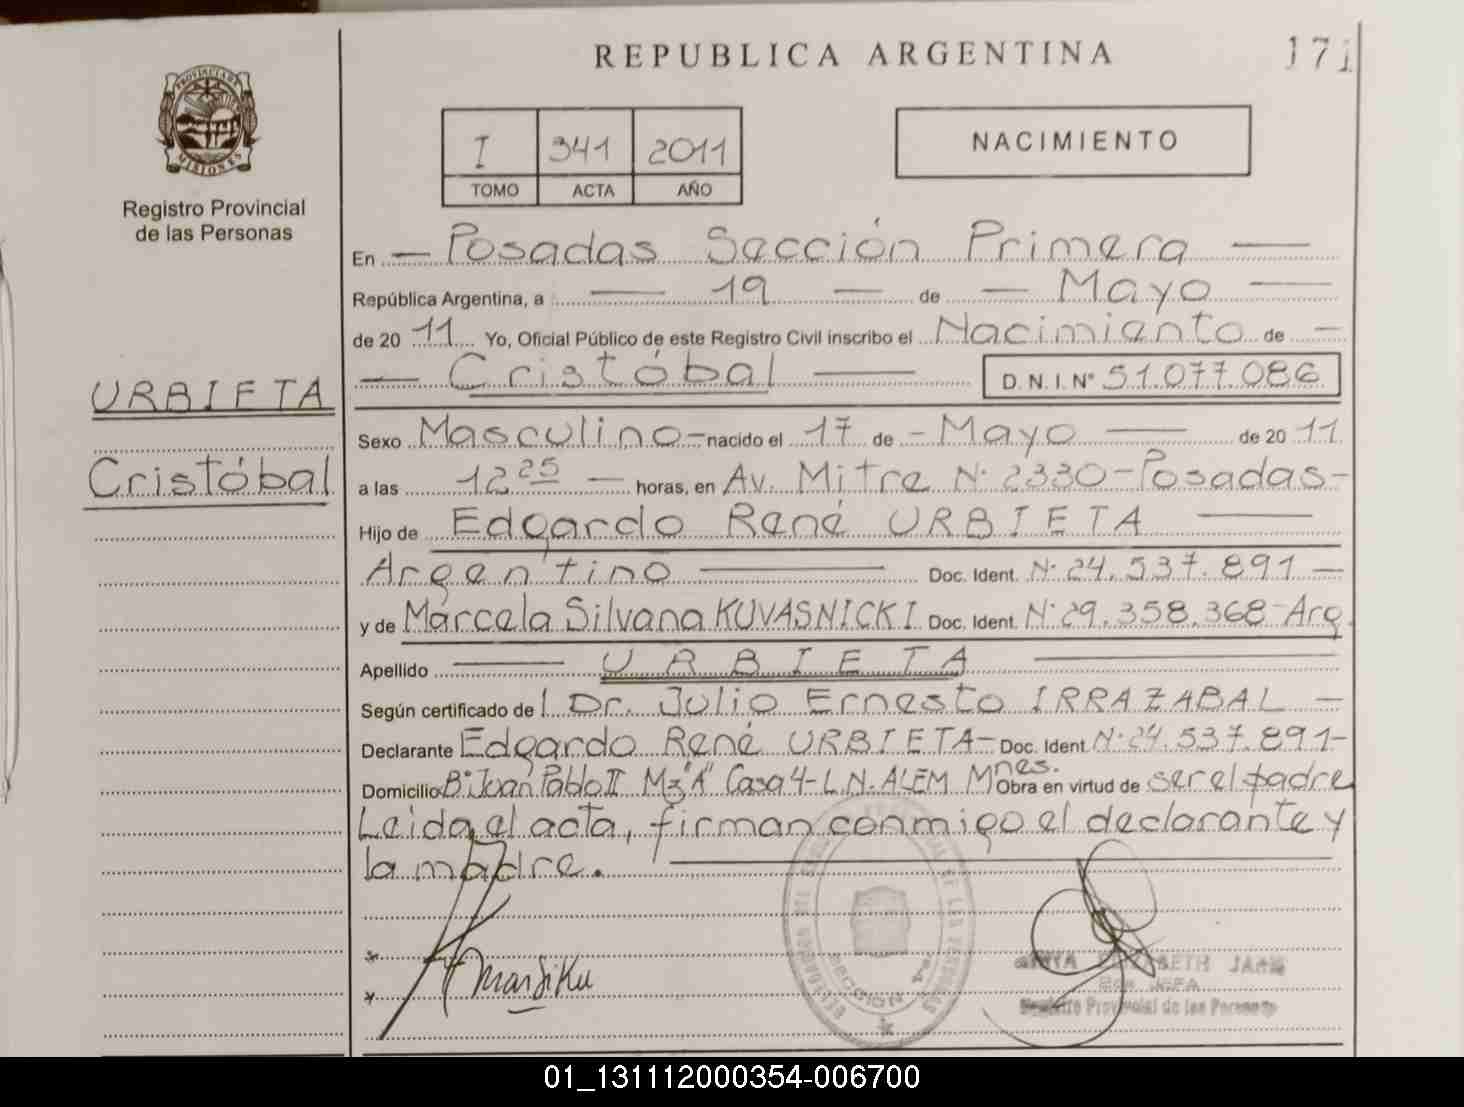 REPUBLICA ARGENTINA
171
PROVINCIA DE
MISIONES
Registro Provincial
de las Personas
I 341 2011
TOMO ACTA AÑO
NACIMIENTO
URBIETA
Cristóbal
En — Posadas Sección Primera —
República Argentina, a — 19 — de — Mayo —
de 20 11 Yo, Oficial Público de este Registro Civil inscribo el Nacimiento de —
— Cristóbal — D.N.I. N° 51.077.086
Sexo Masculino — nacido el 17 de — Mayo — de 20 11
a las 12 25 — horas, en Av. Mitre N° 2330 - Posadas -
Hijo de Edgardo René URBIETA —
Argentino — Doc. Ident. N° 24.537.891 —
y de Marcela Silvana KUVASNICKI Doc. Ident. N° 29.358.368 - Arg.
Apellido — URBIETA —
Según certificado del Dr. Julio Ernesto IRRAZABAL —
Declarante Edgardo René URBIETA - Doc. Ident. N° 24.537.891 -
Domicilio B° Juan Pablo II Mz "A" Casa 4 - L.N. ALEM Mnes. Obra en virtud de ser el padre
Leida el acta, firman conmigo el declarante y
la madre. —
SECCION 1ra
ELIZABETH
JEFA
Registro Provincial de las Personas
01_131112000354-006700